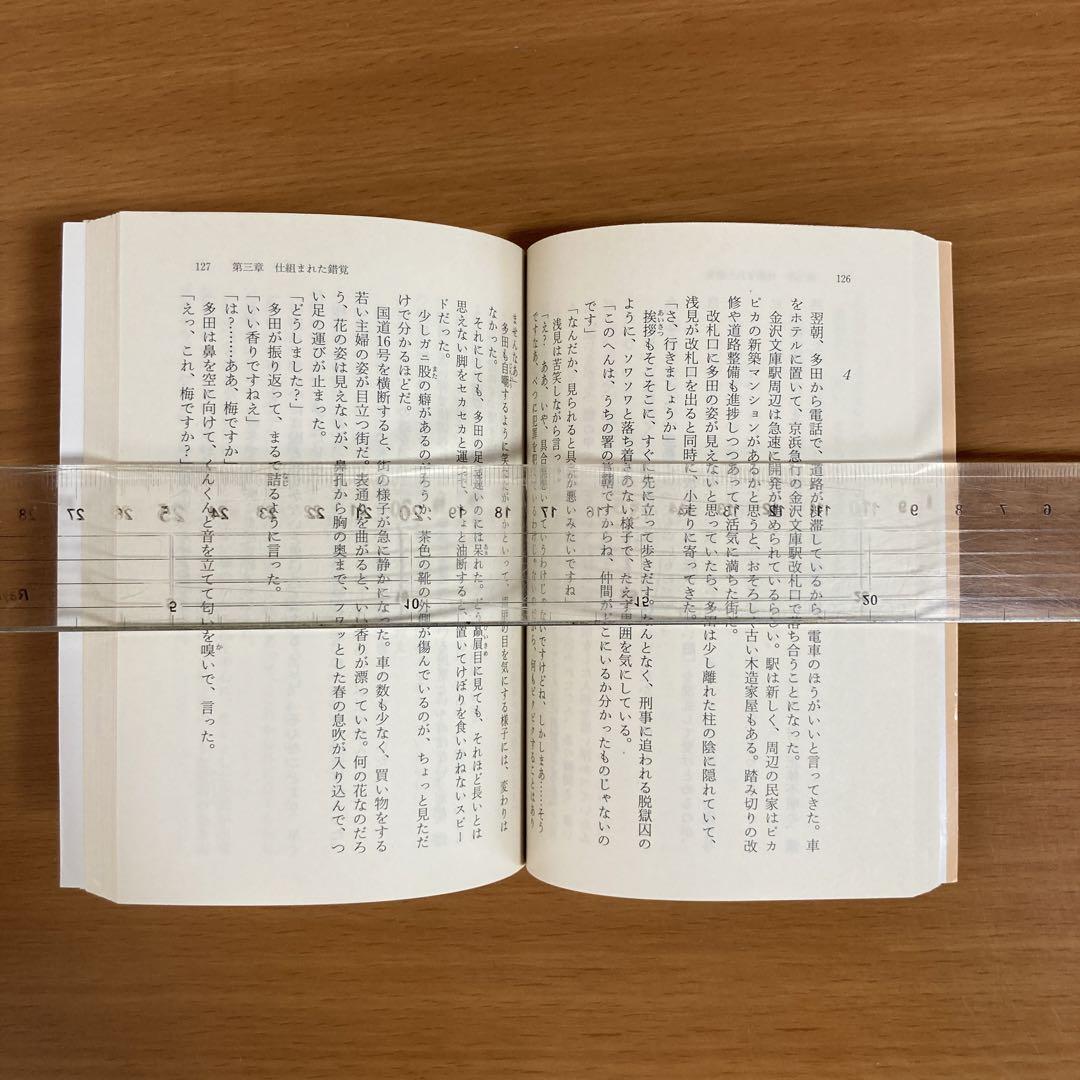 126
4
翌朝、多田から電話で、道路が渋滞しているから、電車のほうがいいと言ってきた。車
をホテルに置いて、京浜急行の金沢文庫駅改札口で落ち合うことになった。
金沢文庫駅周辺は急速に開発が進められているらしい。駅は新しく、周辺の民家はピカ
ピカの新築マンションがあるかと思うと、おそろしく古い木造家屋もある。踏み切りの改
修や道路整備も進捗しつつあって、活気に満ちた街だ。
改札口に多田の姿が見えないと思っていたら、多田は少し離れた柱の陰に隠れていて、
浅見が改札口を出ると同時に、小走りに寄ってきた。
「さ、行きましょうか」
挨拶もそこそこに、すぐに先に立って歩きだす。なんとなく、刑事に追われる脱獄囚の
ように、ソワソワと落ち着きのない様子で、たえず周囲を気にしている。
「このへんは、うちの署の管轄ですからね、仲間がどこにいるか分かったものじゃないの
です」
「なんだか、見られると具合が悪いみたいですね」
浅見は苦笑しながら言っ
「え？ ああ、いや、具合が悪いっていうわけじゃないですけどね、しかしまあ……そう
ですなあ、べつに犯罪を
ませんなあ」
多田も自嘲するように笑ったが、だからといって、周囲の目を気にする様子には、変わりは
なかった。
それにしても、多田の足の速いのには呆れた。どう贔屓目に見ても、それほど長いとは
思えない脚をセカセカと運んで、ちょっと油断すると、置いてけぼりを食いかねないスピー
ドだった。
少しガニ股の癖があるのだろうか、茶色の靴の外側が傷んでいるのが、ちょっと見ただ
けで分かるほどだ。
国道16号を横断すると、街の様子が急に静かになった。車の数も少なく、買い物をする
若い主婦の姿が目立つ街だ。表通りを曲がると、いい香りが漂っていた。何の花なのだろ
う、花の姿は見えないが、鼻孔から胸の奥まで、フワッとした春の息吹が入り込んで、つ
い足の運びが止まった。
「どうしました？」
多田が振り返って、まるで詰るように言った。
「いい香りですねえ」
「は？……ああ、梅ですか」
多田は鼻を空に向けて、くんくんと音を立てて匂いを嗅いで、言った。
「えっ、これ、梅ですか？」
127 第三章 仕組まれた錯覚
28 27 26 25 24 23 22 21 20 19 18 17 16 15 14 13 12 11 10 9 8 7 6
5 10 15 20